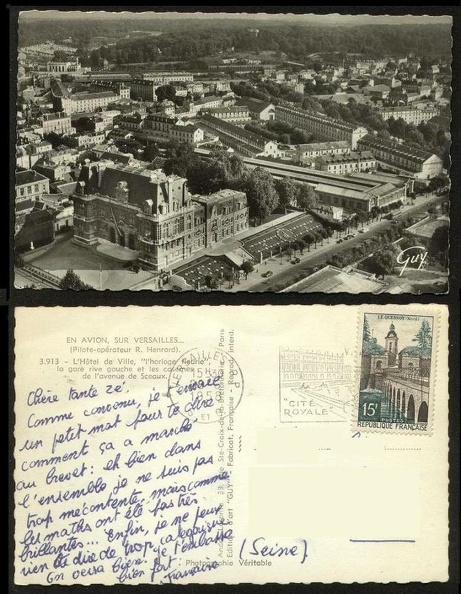 Guy
EN AVION, SUR VERSAILLES...
(Pilote-opérateur R. Henrard).
3.913 - L'Hôtel de Ville, "l'horloge fleurie",
la gare rive gauche et les casernes
de l'avenue de Sceaux.
Chère tante Zé,
Comme convenu, je t'envoie
un petit mot pour te dire
comment ça a marché
au brevet : eh bien dans
l'ensemble je ne suis pas
trop mécontente, mais comme
les maths ont été pas très
brillantes... Enfin, je ne peux
rien te dire de trop catégorique
On verra bien. Je t'embrasse
bien fort.
Francine
VERSAILLES
"CITÉ
ROYALE"
LE QUESNOY (Nord)
15F
POSTES
RÉPUBLIQUE FRANÇAISE
Rue Ste-Croix-de-la-Bretonnerie, Paris
Editions d'art "GUY" Fabricat. Française - Reprod. interd.
(Seine)
Photographie Véritable